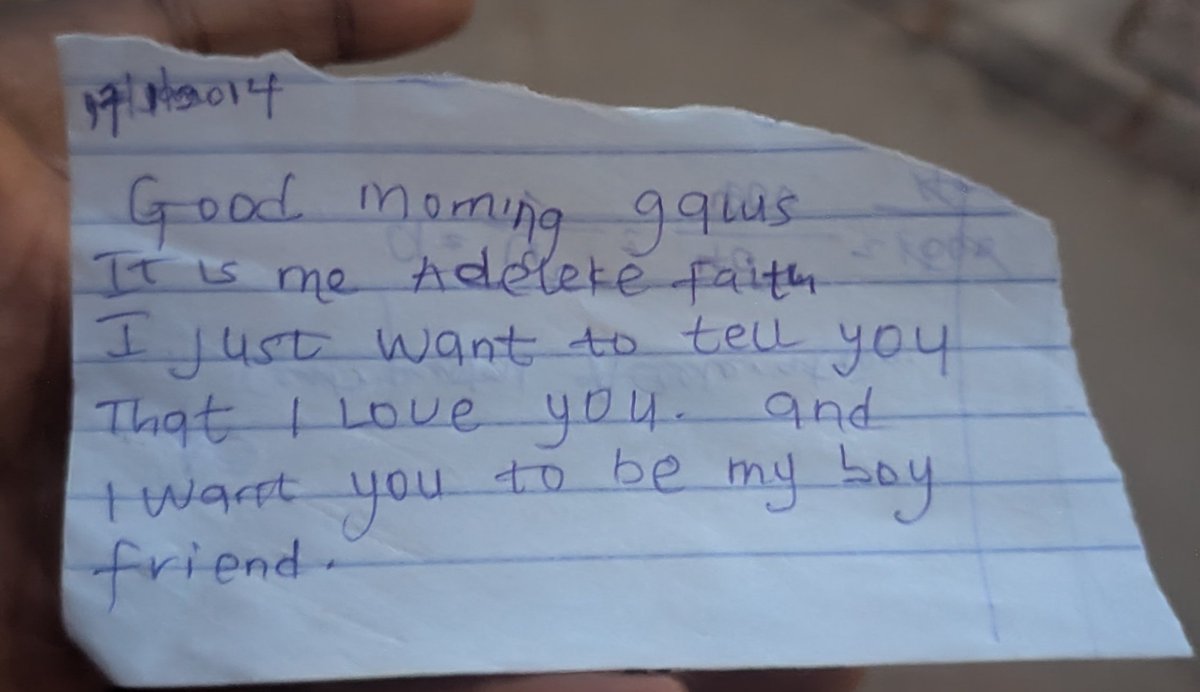 Good morning gaius
It is me Adeleke faith
I just want to tell you
That I Love you. and
I want you to be my boy
friend.